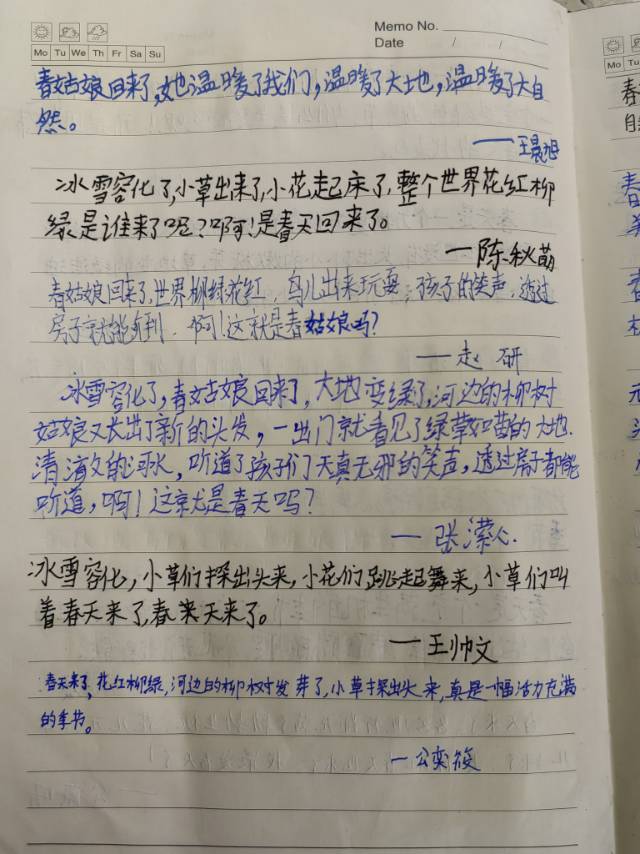 Memo No.
Mo Tu We Th Fr Sa Su
Date / /
春姑娘回来了,她温暖了我们,温暖了大地,温暖了大自
然。
——王晨旭
冰雪容化了,小草出来了,小花起床了,整个世界花红柳
绿是谁来了呢?啊!是春天回来了。
—陈秋萌
春姑娘回来了,世界柳绿花红,鸟儿出来玩耍,孩子的笑声,透过
房子就能听到.啊!这就是春姑娘吗?
——赵研
冰雪容化了,春姑娘回来了,大地变绿了,河边的柳树
姑娘又长出了新的头发,一出门就看见了绿草如茵的大地.
清澈的河水,听道了孩子们天真无邪的笑声,透过房子都能
听道,啊!这就是春天吗?
—张潆心.
冰雪容化,小草们探出头来,小花们跳起舞来,小草们叫
着春天来了,春天来了。
—王帅文
春天来了,花红柳绿,河边的柳树发芽了,小草探出头来,真是一幅活力充满
的季节。
—公奕筱
Mo Tu
春
自
春